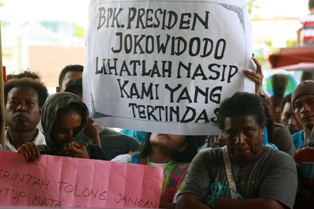 BPK. PRESIDEN
JOKOWIDODO
LIHATLAH NASIP
KAMI YANG
TERTINDAS
RINTAH TOLONG JANGAN
TUP MATA